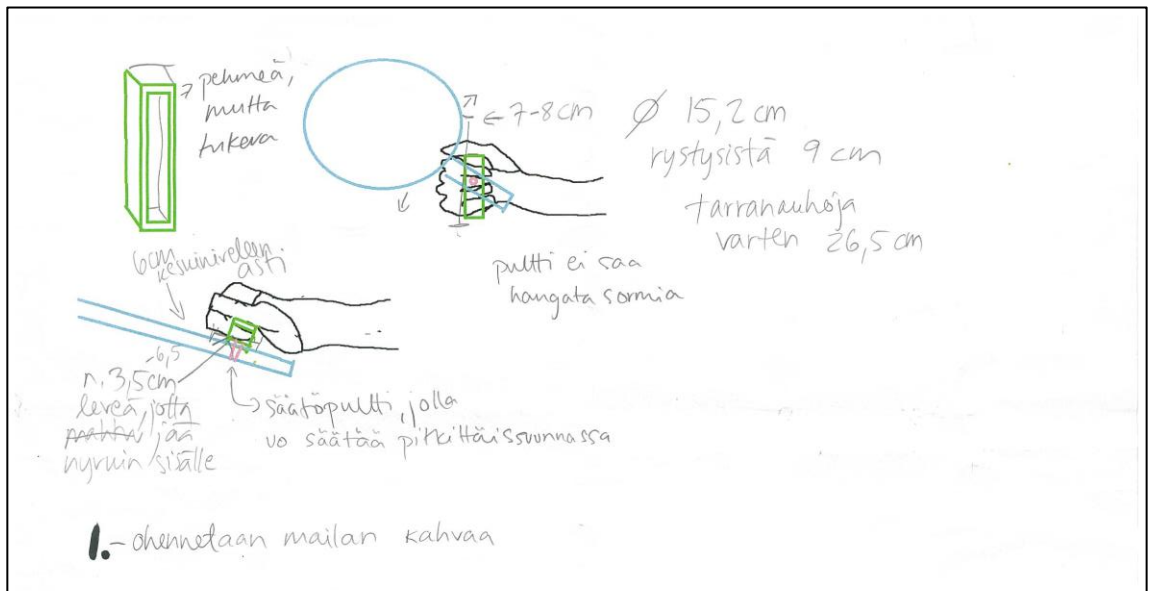 pehmeä,
mutta
tukeva
← 7-8 cm
Ø 15,2 cm
rystysistä 9 cm
tarranauhoja
varten 26,5 cm
pultti ei saa
hangata sormia
6cm
keskiniveleen
asti
-6,5
n. 3,5cm
leveä, jotta
jää
hyvin sisälle
säätöpultti, jolla
vo säätää pitkittäissuunnassa
1. - ohennetaan mailan kahvaa